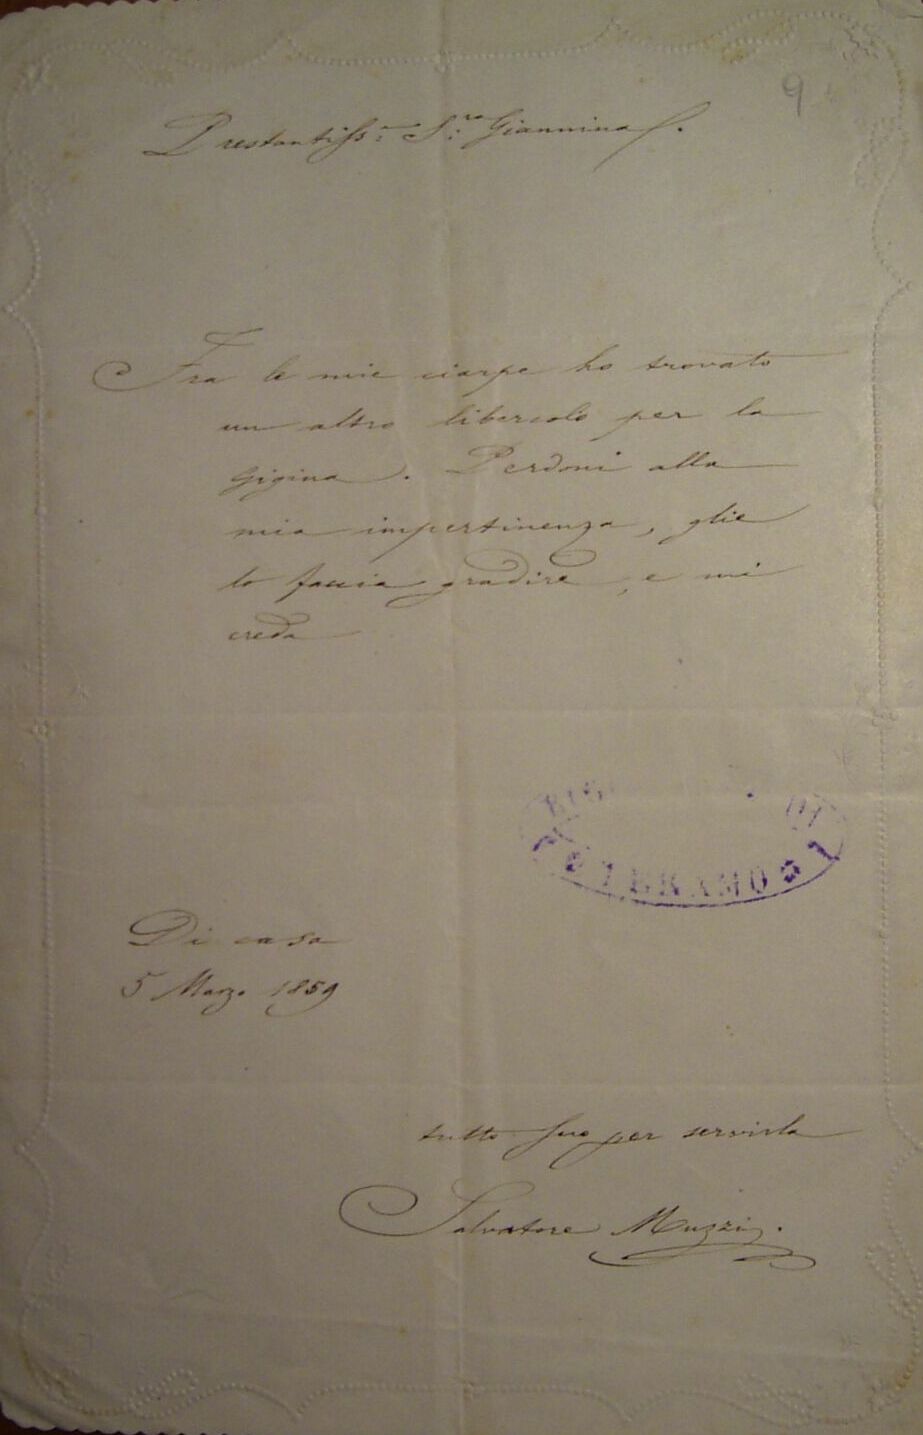 9
Prestantiss: S:ra Giannina
Fra le mie ciarpe ho trovato
un altro libercolo per la
Gigina. Perdoni alla
mia impertinenza, glie
lo faccia gradire, e mi
creda
DI
TERAMO
Di casa
5 Marzo 1859
tutto suo per servirla
Salvatore Muzzi.